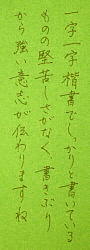 一字一字楷書でしっかりと書いている
ものの堅苦しさがなく、書きぶり
から強い意志が伝わりますね